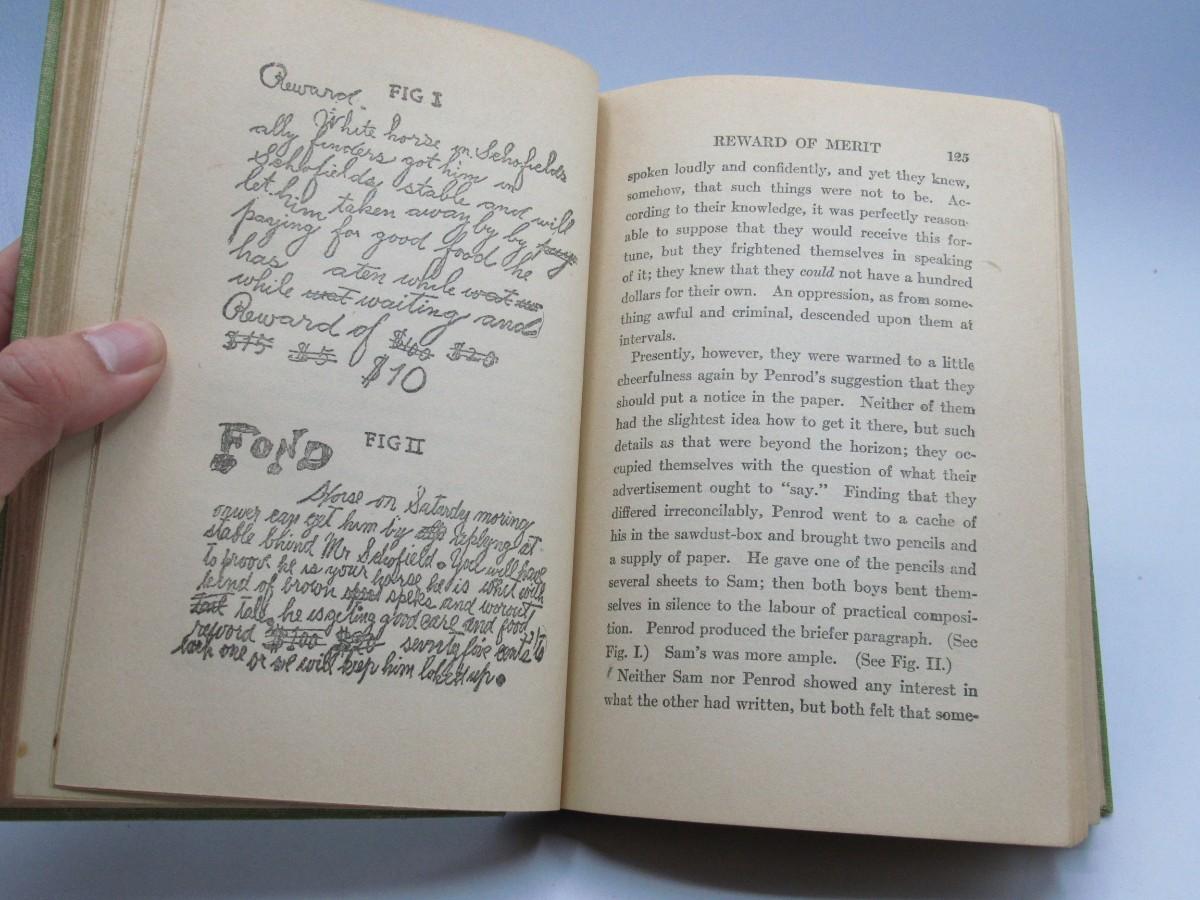 Reward.
FIG I
White horse in Schofields
ally finders got him in
Schofields stable and will
let him taken away by by pay
paying for good food he
has aten while wat
while wat waiting and
Reward of $100 $20
$15 $5 $10
FOND
FIG II
Horse on Saturday morning
onwer can get him by replying at
stable bhind Mr Schofield. You will have
to proove he is your horse he is whit with
kind of brown speks and worout
tail he is geting good care and food
reword $100 $20 seventy five cents to
each one or we will keep him locked up.
REWARD OF MERIT 125
spoken loudly and confidently, and yet they knew,
somehow, that such things were not to be. Ac-
cording to their knowledge, it was perfectly reason-
able to suppose that they would receive this for-
tune, but they frightened themselves in speaking
of it; they knew that they could not have a hundred
dollars for their own. An oppression, as from some-
thing awful and criminal, descended upon them at
intervals.
Presently, however, they were warmed to a little
cheerfulness again by Penrod's suggestion that they
should put a notice in the paper. Neither of them
had the slightest idea how to get it there, but such
details as that were beyond the horizon; they oc-
cupied themselves with the question of what their
advertisement ought to “say.” Finding that they
differed irreconcilably, Penrod went to a cache of
his in the sawdust-box and brought two pencils and
a supply of paper. He gave one of the pencils and
several sheets to Sam; then both boys bent them-
selves in silence to the labour of practical composi-
tion. Penrod produced the briefer paragraph. (See
Fig. I.) Sam's was more ample. (See Fig. II.)
Neither Sam nor Penrod showed any interest in
what the other had written, but both felt that some-